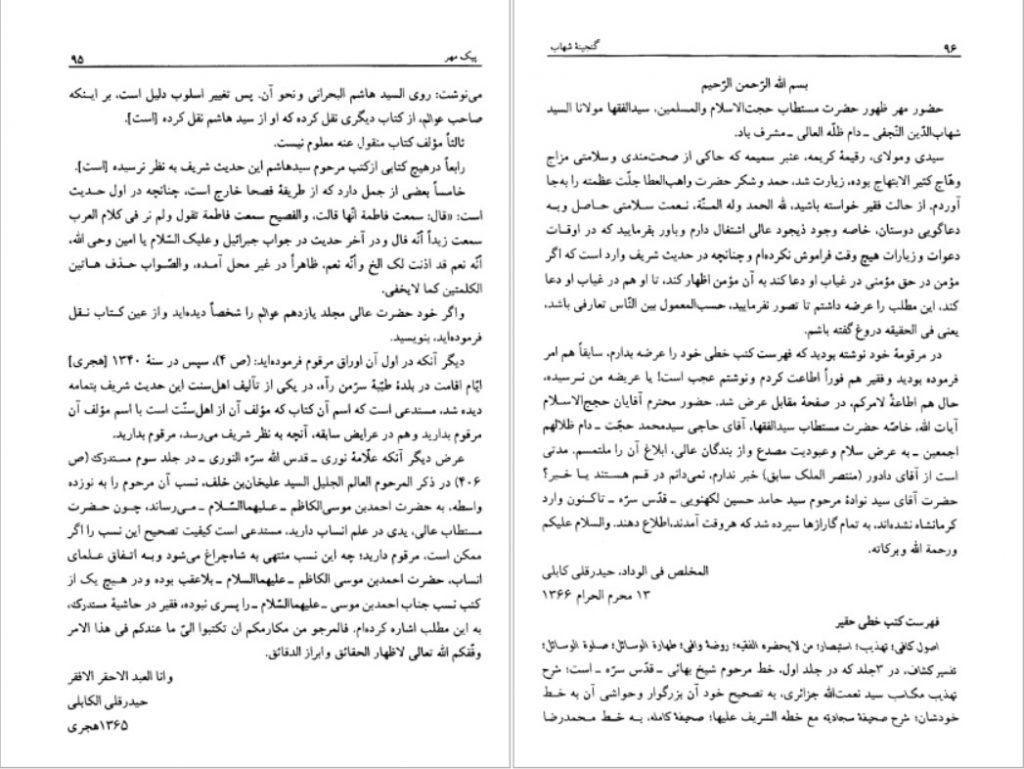 ۹۵
پیک مهر
می‌نوشت: روی السید هاشم البحرانی ونحو آن. پس تغییر اسلوب دلیل است، بر اینکه
صاحب عوالم، از کتاب دیگری نقل کرده که او از سید هاشم نقل کرده [است].
ثالثاً مؤلف کتاب منقول عنه معلوم نیست.
رابعاً درهیچ کتابی ازکتب مرحوم سیدهاشم این حدیث شریف به نظر نرسیده [است].
خامساً بعضی از جمل دارد که از طریقهٔ فصحا خارج است، چنانچه در اول حدیث
است: «قال: سمعت فاطمة انّها قالت، والفصیح سمعت فاطمة تقول ولم نر فی کلام العرب
سمعت زیداً أنّه قال ودر آخر حدیث در جواب جبرائیل وعلیک السّلام یا امین وحی الله،
أنّه نعم قد اذنت لک الخ وأنّه نعم، ظاهراً در غیر محل آمده، والصّواب حذف هاتین
الکلمتین کما لایخفی.
واگر خود حضرت عالی مجلد یازدهم عوالم را شخصاً دیده‌اید و از عین کتاب نقل
فرموده‌اید، بنویسید.
دیگر آنکه در اول آن اوراق مرقوم فرموده‌اید: (ص ۴)، سپس در سنهٔ ۱۳۴۰ [هجری]
ایّام اقامت در بلدهٔ طیّبهٔ سرّمن رآه، در یکی از تألیف اهل‌سنت این حدیث شریف بتمامه
دیده شد، مستدعی است که اسم آن کتاب که مؤلف آن از اهل‌سنّت است با اسم مؤلف آن
مرقوم بدارید وهم در عرایض سابقه، آنچه به نظر شریف می‌رسد، مرقوم بدارید.
عرض دیگر آنکه علّامهٔ نوری ـ قدس الله سرّه النوری ـ در جلد سوم مستدرک (ص
۴۰۶) در ذکر المرحوم العالم الجلیل السید علیخان‌بن خلف، نسب آن مرحوم را به نوزده
واسطه، به حضرت احمدبن موسی‌الکاظم ـ علیهماالسّلام ـ می‌رساند، چون حضرت
مستطاب عالی، یدی در علم انساب دارید، مستدعی است کیفیت تصحیح این نسب را اگر
ممکن است، مرقوم دارید؛ چه این نسب منتهی به شاه‌چراغ می‌شود وبه اتفاق علمای
انساب، حضرت احمدبن موسی الکاظم ـ علیهماالسلام ـ بلاعقب بوده ودر هیچ یک از
کتب نسب جناب احمدبن موسی ـ علیهماالسّلام ـ را پسری نبوده، فقیر در حاشیهٔ مستدرک،
به این مطلب اشاره کرده‌ام. فالمرجو من مکارمکم ان تکتبوا الیّ ما عندکم فی هذا الامر
وفّقکم الله تعالی لاظهار الحقائق وابراز الدقائق.
وانا العبد الاحقر الافقر
حیدرقلی الکابلی
۱۳۶۵هجری
۹۶
گنجینهٔ شهاب
بسم الله الرّحمن الرّحیم
حضور مهر ظهور حضرت مستطاب حجت‌الاسلام والمسلمین، سیدالفقها مولانا السید
شهاب‌الدّین النّجفی ـ دام ظلّه العالی ـ مشرف باد.
سیدی ومولای، رقیمهٔ کریمه، عنبر سمیمه که حاکی از صحت‌مندی و سلامتی مزاج
وهّاج کثیر الابتهاج بوده، زیارت شد، حمد و شکر حضرت واهب‌العطا جلّت عظمته را به‌جا
آوردم. از حالت فقیر خواسته باشید، لله الحمد وله المنّة، نعمت سلامتی حاصل و به
دعاگویی دوستان، خاصه وجود ذیجود عالی اشتغال دارم وباور بفرمایید که در اوقات
دعوات و زیارات هیچ وقت فراموش نکرده‌ام و چنانچه در حدیث شریف وارد است که اگر
مؤمن در حق مؤمنی در غیاب او دعا کند به آن مؤمن اظهار کند، تا او هم در غیاب او دعا
کند، این مطلب را عرضه داشتم تا تصور نفرمایید، حسب‌المعمول بین النّاس تعارفی باشد،
یعنی فی الحقیقه دروغ گفته باشم.
در مرقومهٔ خود نوشته بودید که فهرست کتب خطی خود را عرضه بدارم، سابقاً هم امر
فرموده بودید وفقیر هم فوراً اطاعت کردم ونوشتم عجب است! یا عریضه من نرسیده،
حال هم اطاعةً لامرکم، در صفحهٔ مقابل عرض شد. حضور محترم آقایان حجج‌الاسلام
آیات الله، خاصّه حضرت مستطاب سیدالفقها، آقای حاجی سیدمحمد حجّت ـ دام ظلالهم
اجمعین ـ به عرض سلام وعبودیت مصدع واز بندگان عالی، ابلاغ آن را ملتمسم. مدتی
است از آقای دادور (منتصر الملک سابق) خبر ندارم، نمی‌دانم در قم هستند یا خیر؟
حضرت آقای سید نوادهٔ مرحوم سید حامد حسین لکهنویی ـ قدّس سرّه ـ تاکنون وارد
کرمانشاه نشده‌اند، به تمام گاراژها سپرده شد که هروقت آمدند،اطلاع دهند. والسلام علیکم
ورحمة الله وبرکاته.
المخلص فی الوداد، حیدرقلی کابلی
۱۳ محرم الحرام ۱۳۶۶
فهرست کتب خطی حقیر
اصول کافی؛ تهذیب؛ استبصار؛ من لایحضره الفقیه؛ روضهٔ وافی؛ طهارة الوسائل؛ صلوة الوسائل؛
تفسیر کشاف، در ۳جلد که در جلد اول، خط مرحوم شیخ بهائی ـ قدّس سرّه ـ است؛ شرح
تهذیب مکاسب سید نعمت‌الله جزائری، به تصحیح خود آن بزرگوار وحواشی آن به خط
خودشان؛ شرح صحیفهٔ سجادیه مع خطه الشریف علیها؛ صحیفهٔ کامله، به خط محمدرضا